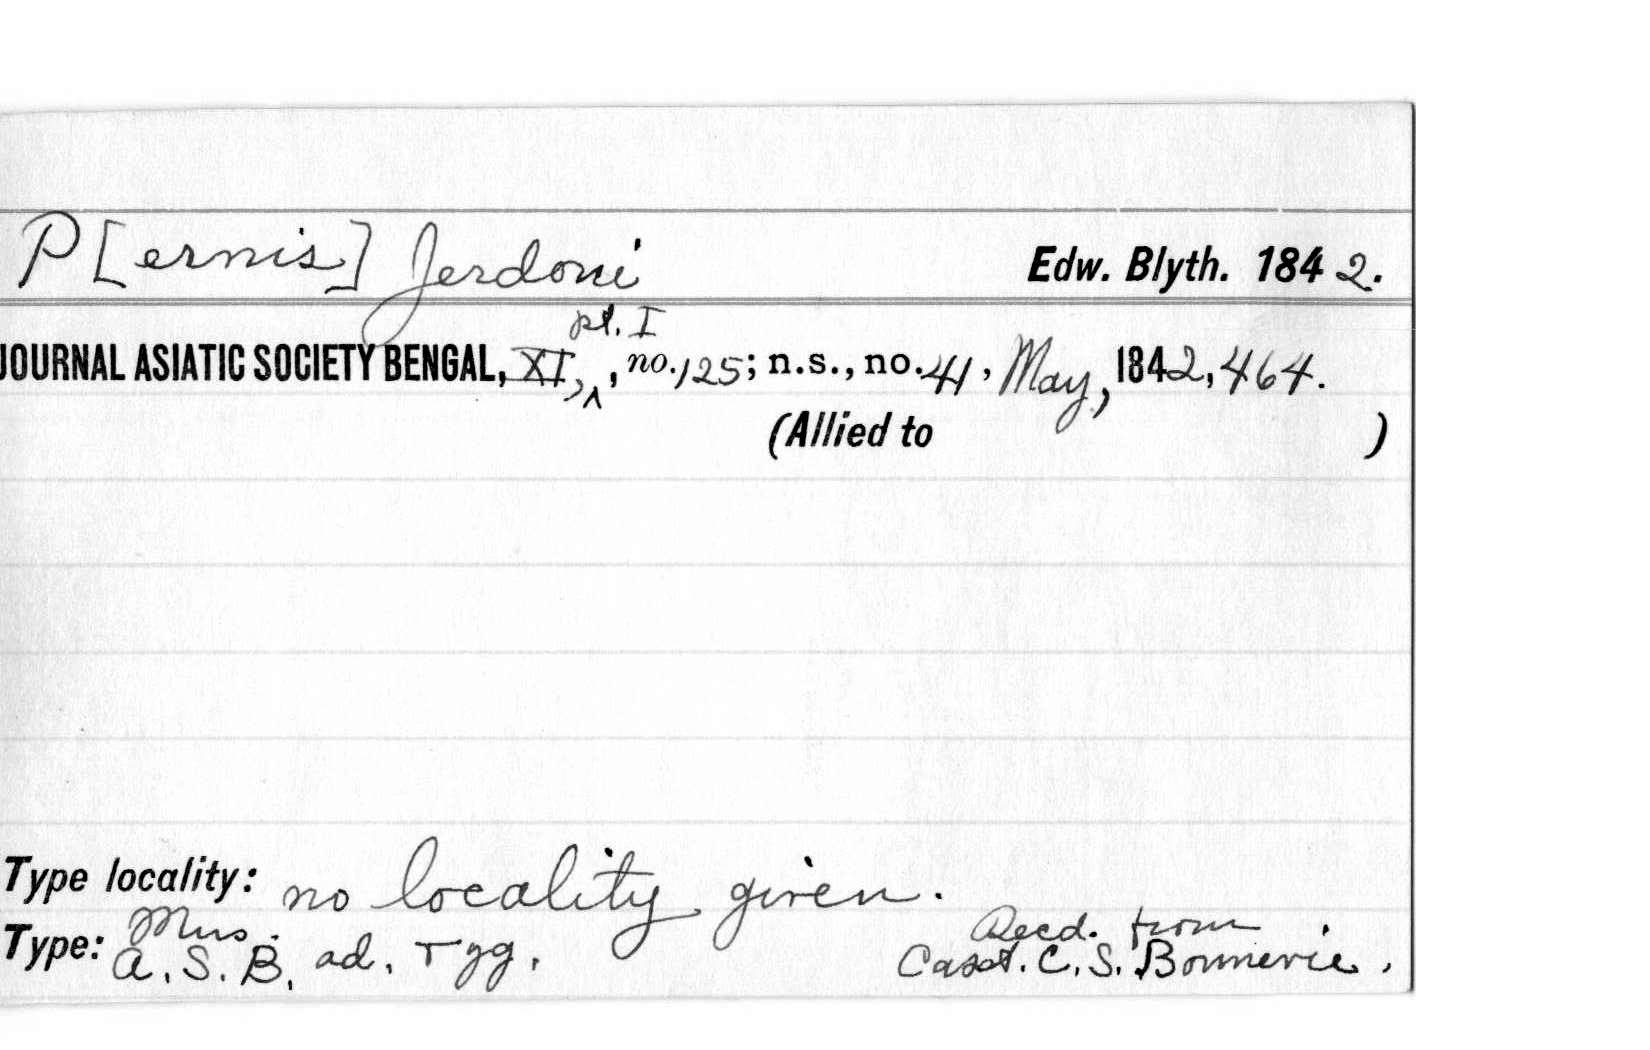 P[ernis] Jerdoni Edw. Blyth. 1842.
pt. I
JOURNAL ASIATIC SOCIETY BENGAL, XI, ^, no. 125; n.s., no. 41, May, 1842, 464.
(Allied to )
Type locality: no locality given.
Mus. Recd. from
Type: A. S. B. ad. + yg. Capt. C. S. Bonnevie.